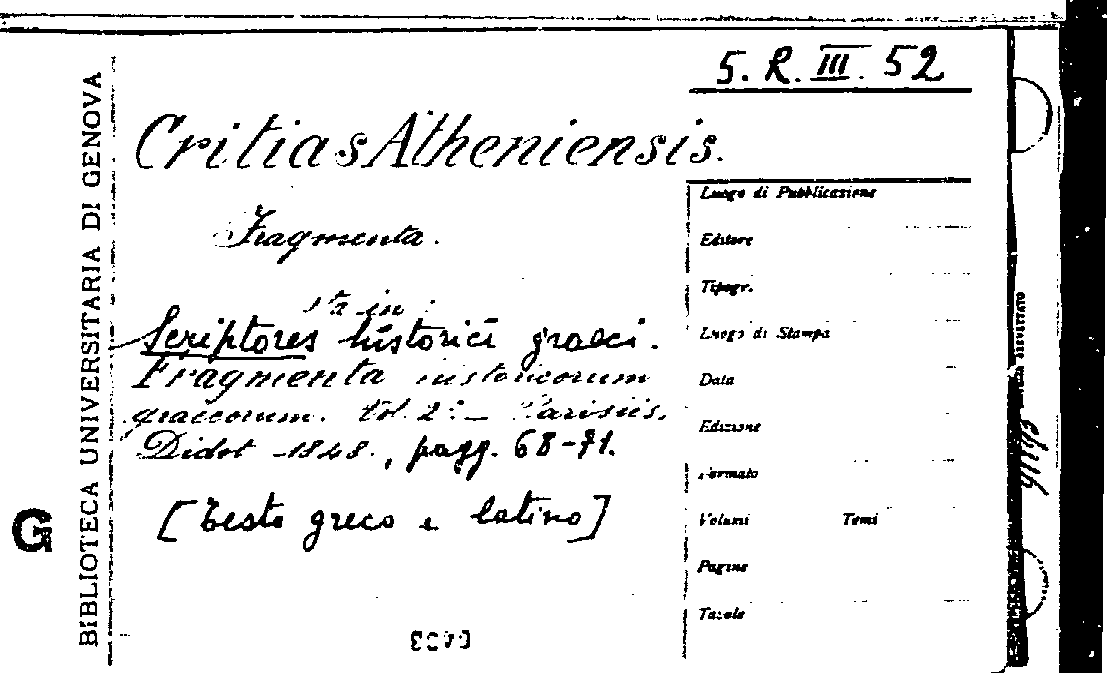 5. R. III. 52
Critias Atheniensis.
Fragmenta.
Sta in:
Scriptores historici graeci.
Fragmenta historicorum
graecorum. Vol. 2:_ Parisiis,
Didot 1848., pagg. 68-71.
[Testo greco e latino]
BIBLIOTECA UNIVERSITARIA DI GENOVA
G
Luogo di Pubblicazione
Editore
Tipogr.
Luogo di Stampa
Data
Edizione
Formato
Volumi Tomi
Pagine
Tavole